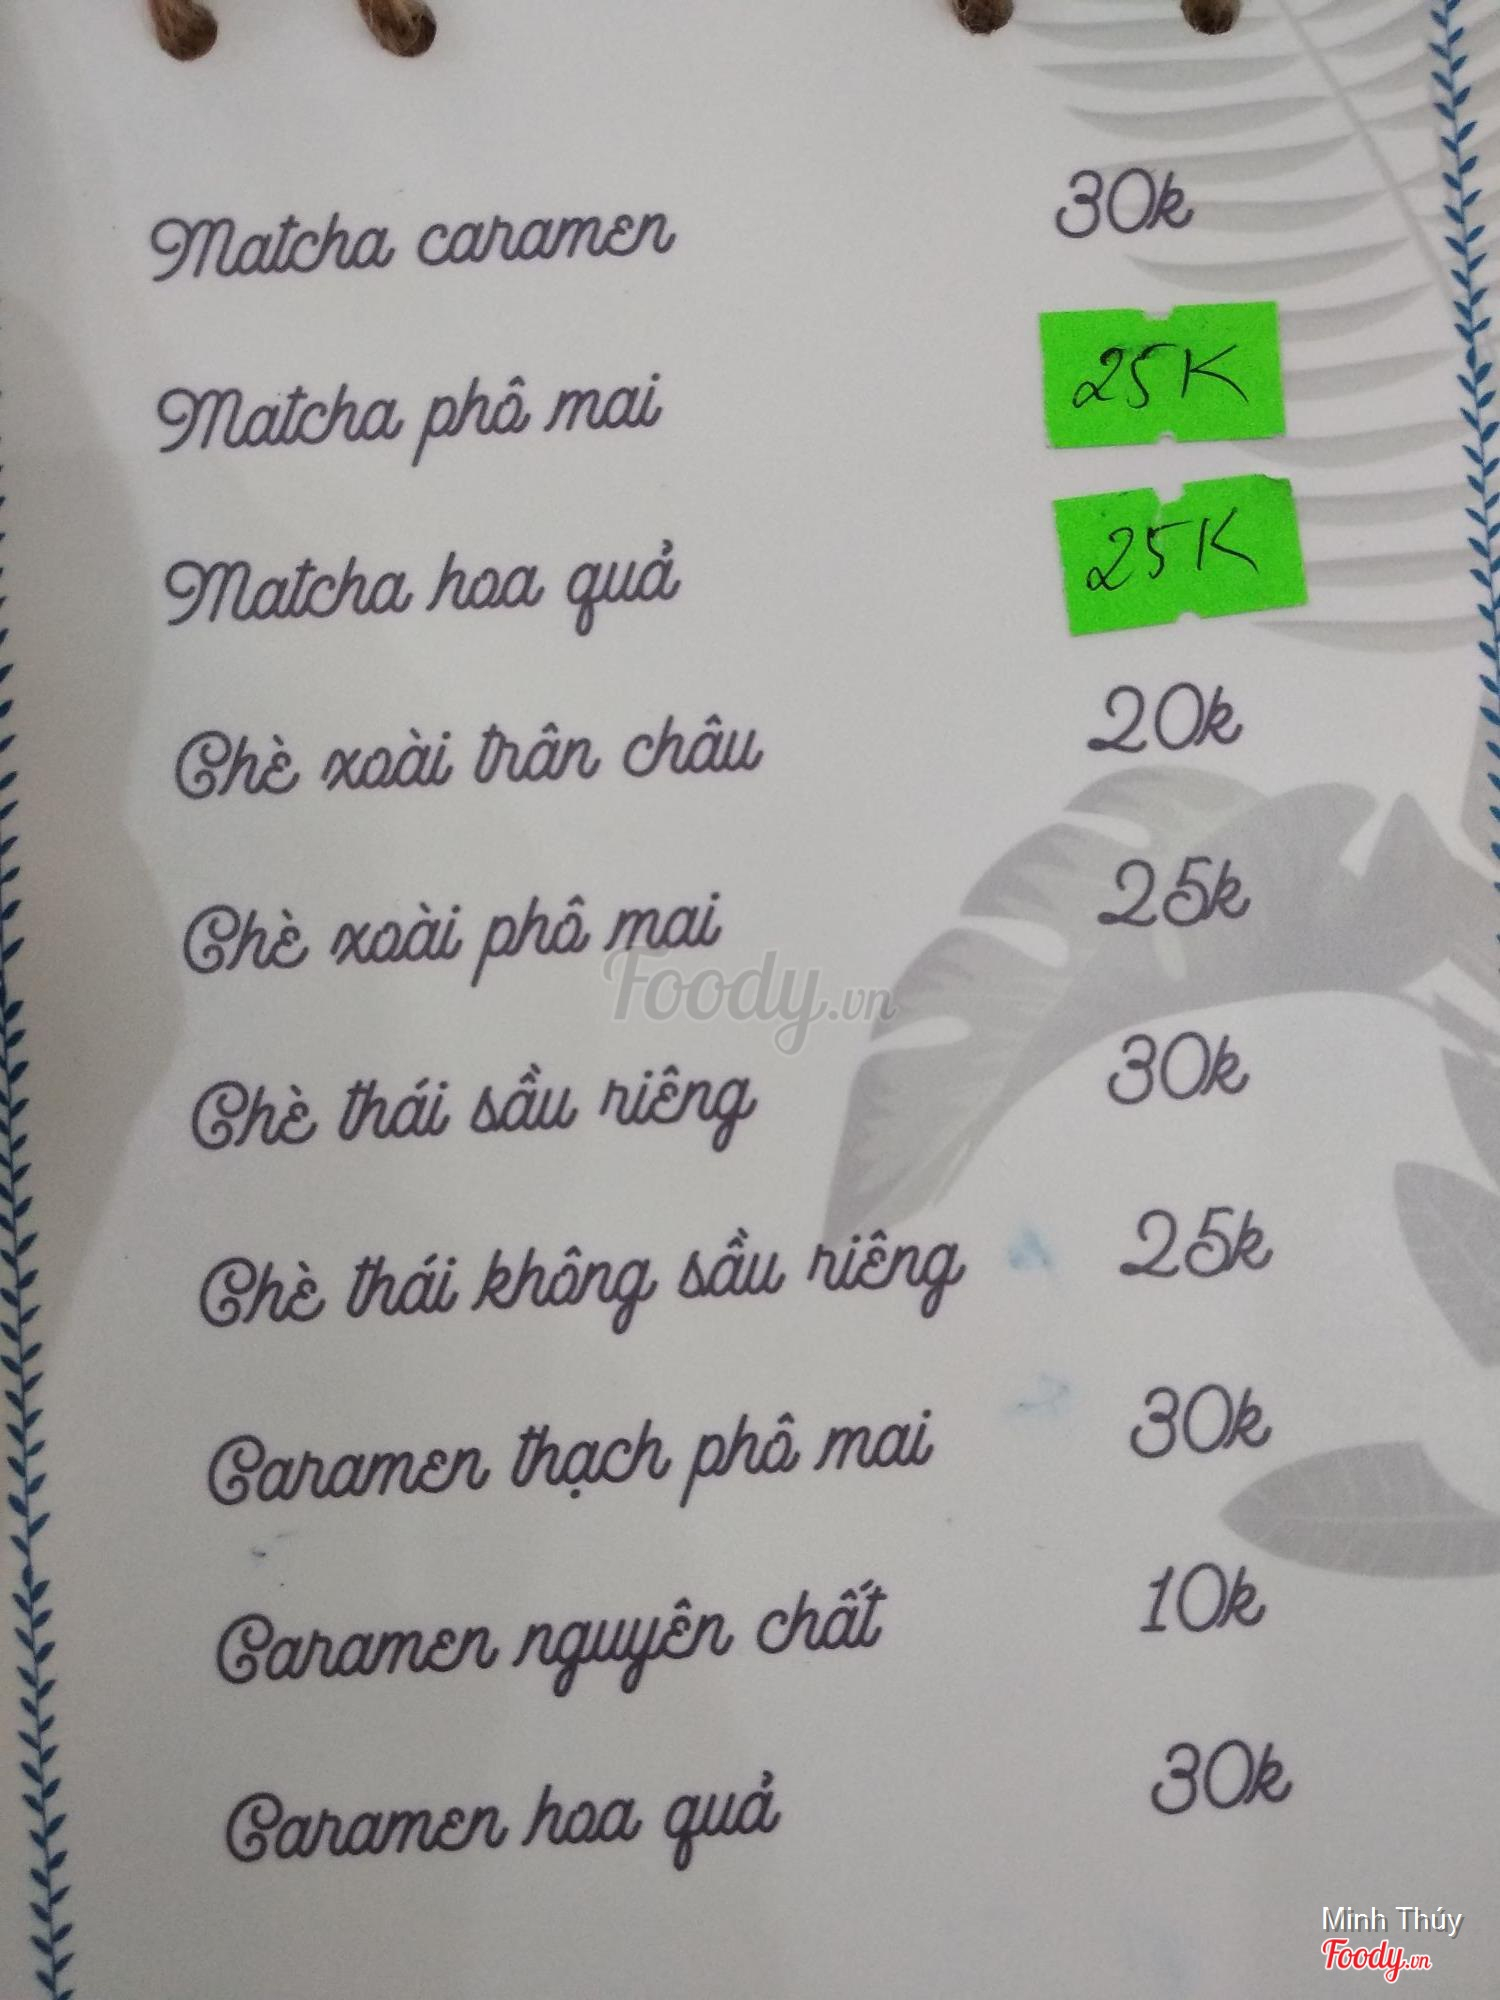 Matcha caramen 30k
Matcha phô mai 25K
Matcha hoa quả 25K
Chè xoài trân châu 20k
Chè xoài phô mai 25k
Foody.vn
Chè thái sầu riêng 30k
Chè thái không sầu riêng 25k
Caramen thạch phô mai 30k
Caramen nguyên chất 10k
Caramen hoa quả 30k
Minh Thúy
Foody.vn